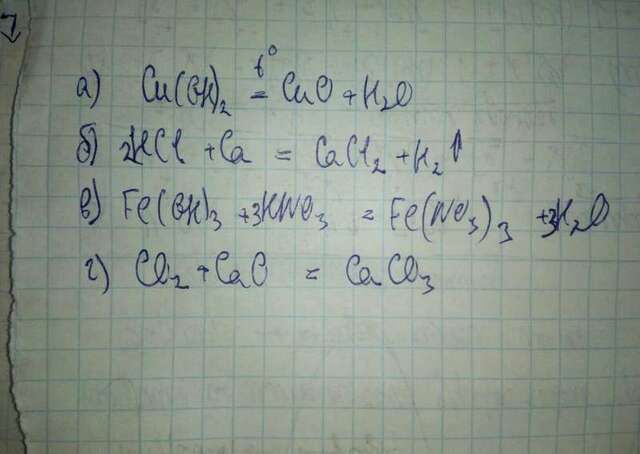 а) Cu(OH)₂ =^t° CuO + H₂O
б) 2HCl + Ca = CaCl₂ + H₂↑
в) Fe(OH)₃ + 3HNO₃ = Fe(NO₃)₃ + 3H₂O
г) CO₂ + CaO = CaCO₃